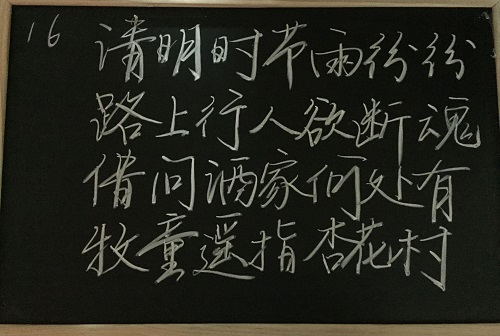 16
清明时节雨纷纷
路上行人欲断魂
借问酒家何处有
牧童遥指杏花村